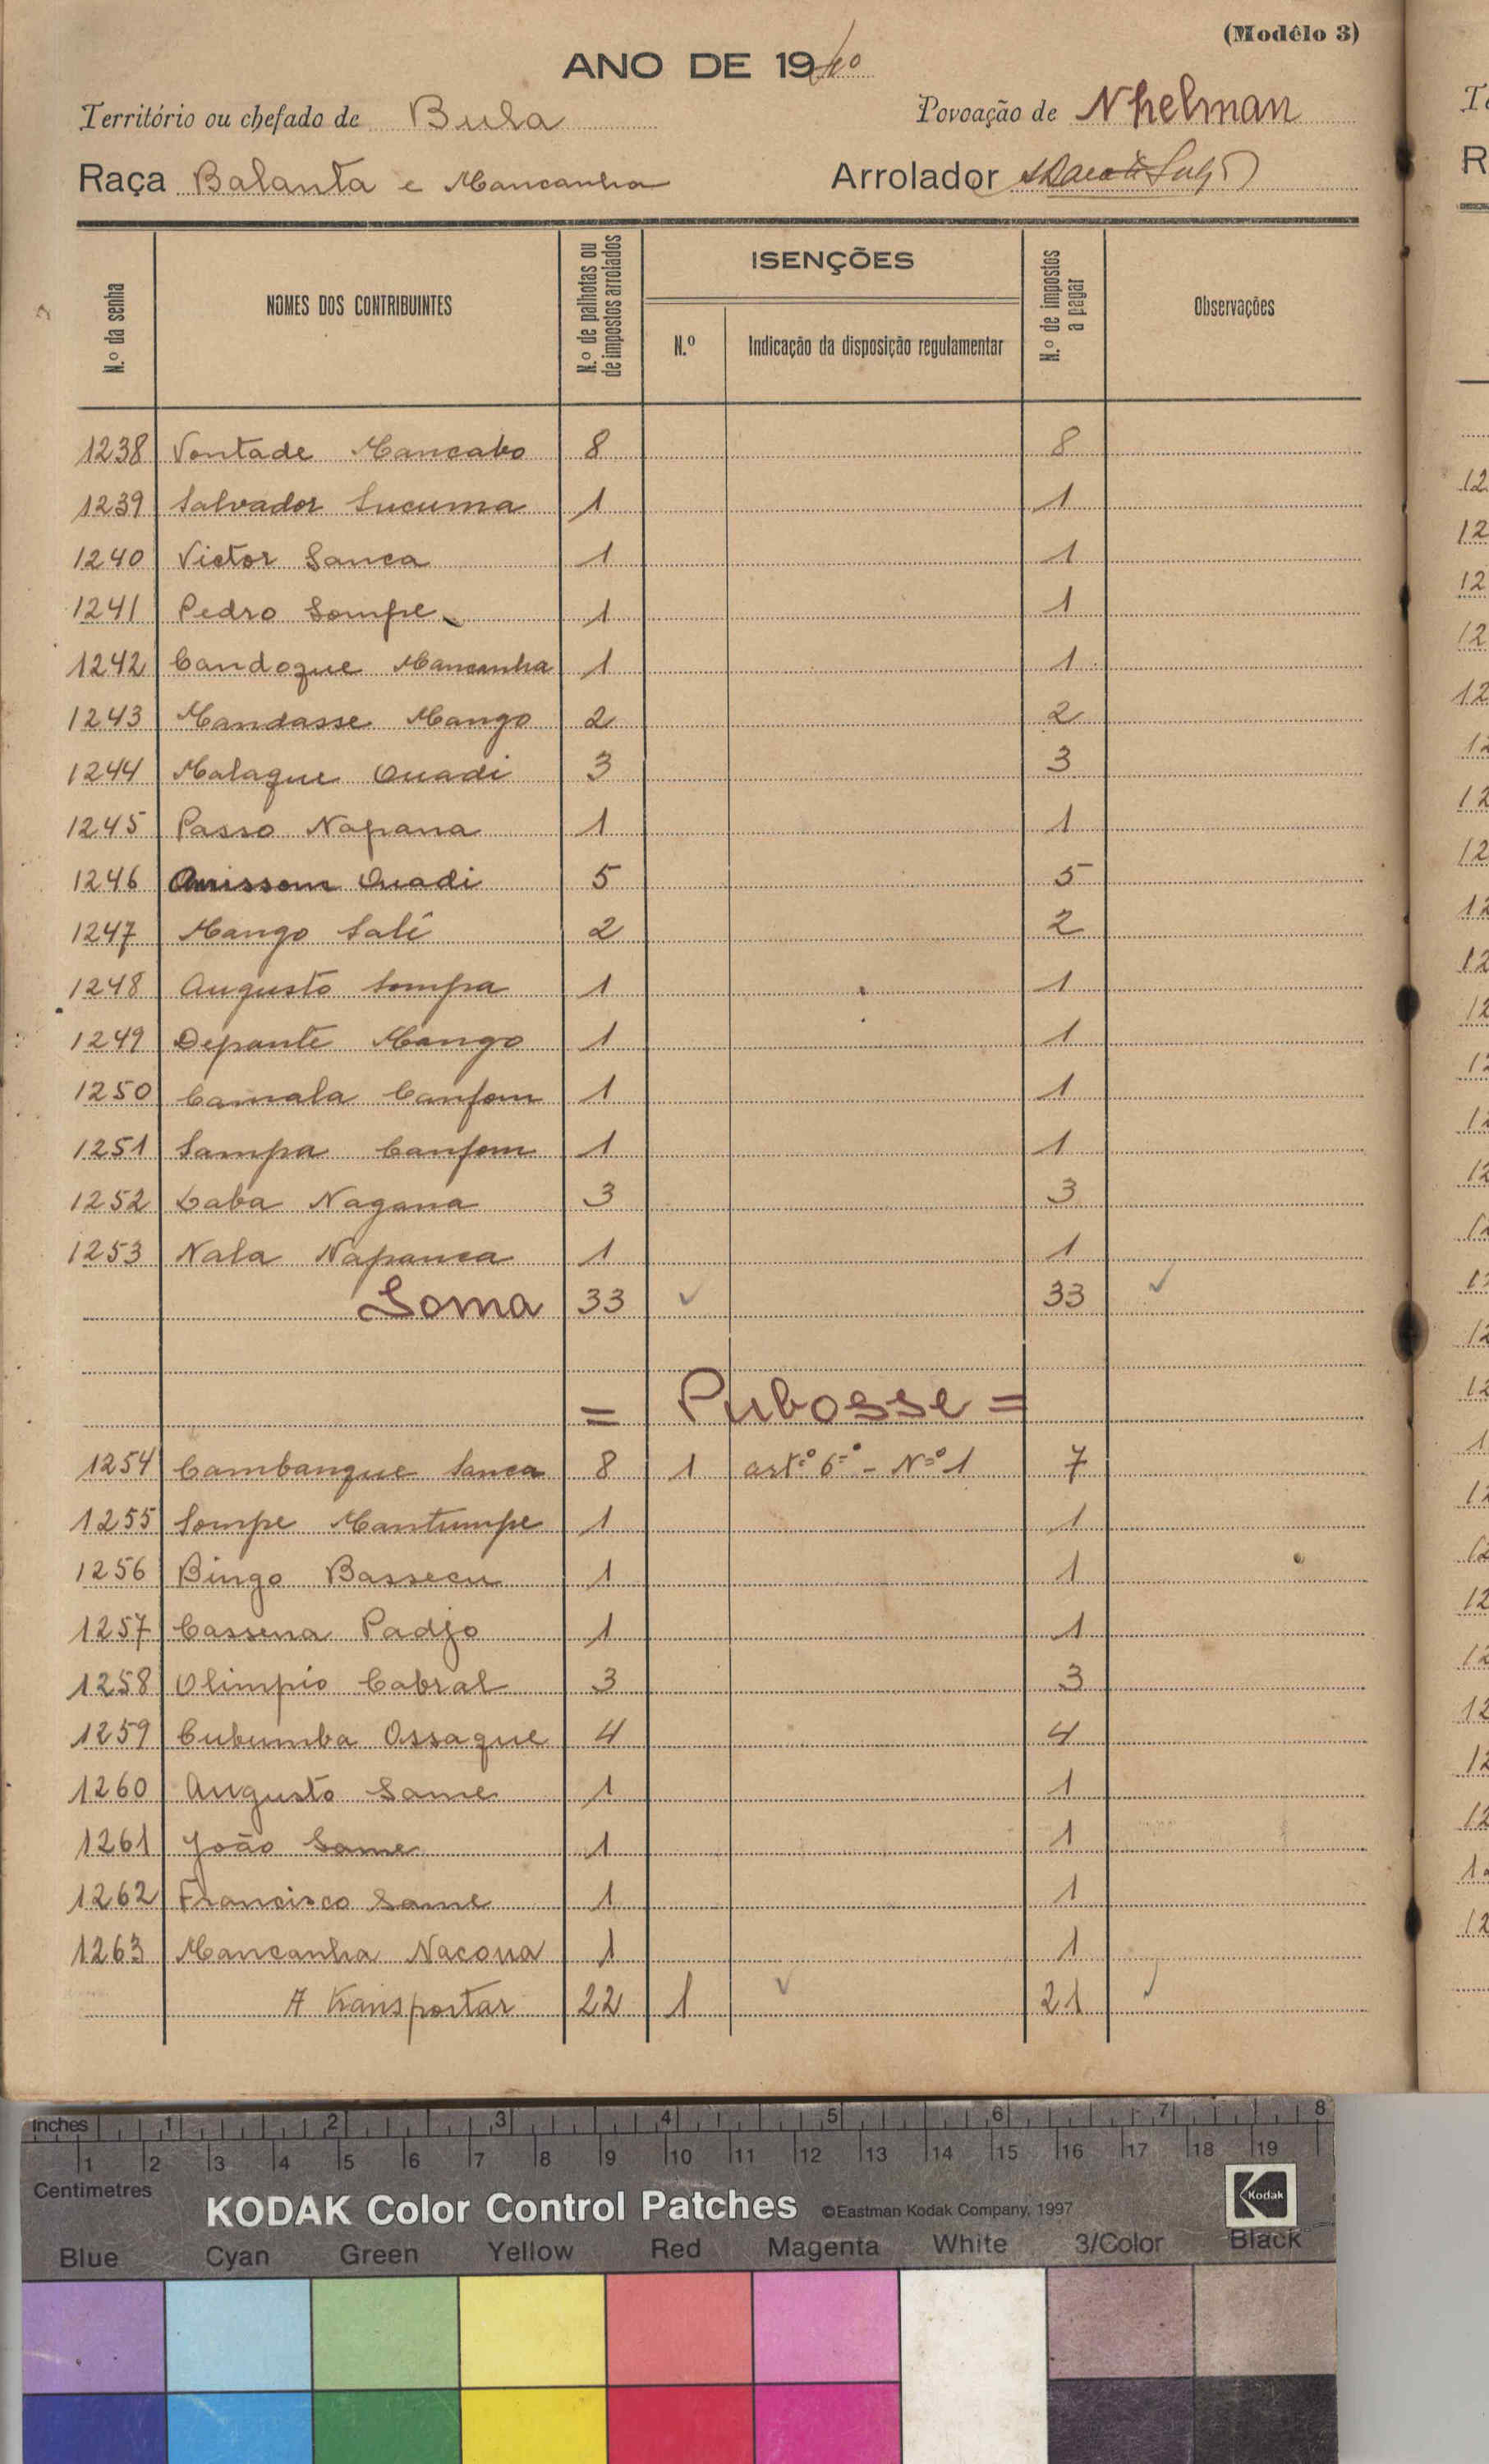 (Modêlo 3)
ANO DE 1940
Território ou chefado de Bula Povoação de Nhelman
Raça Balanta e Mancanha Arrolador
N.º da senha NOMES DOS CONTRIBUINTES N.º de palhotas ou de impostos arrolados ISENÇÕES N.º de impostos a pagar Observações
N.º Indicação da disposição regulamentar
1238 Vontade Mancabo 8 8
1239 Salvador Sucuma 1 1
1240 Victor Sanca 1 1
1241 Pedro Sompe 1 1
1242 Candoque Mancanha 1 1
1243 Mandasse Mango 2 2
1244 Malaque Ouadi 3 3
1245 Passo Napana 1 1
1246 Anissom Ouadi 5 5
1247 Mango Salé 2 2
1248 Augusto Sompa 1 1
1249 Depante Mango 1 1
1250 Camala Canfom 1 1
1251 Sampa Canfom 1 1
1252 Laba Nagana 3 3
1253 Nala Napanca 1 1
Soma 33 ✓ 33 ✓
= Pubosse =
1254 Cambanque Sanca 8 1 artº 6º - Nº 1 7
1255 Sompe Mantumpe 1 1
1256 Bingo Bassecu 1 1
1257 Cassena Padjo 1 1
1258 Olimpio Cabral 3 3
1259 Cubumba Ossaque 4 4
1260 Augusto Same 1 1
1261 João Same 1 1
1262 Francisco Same 1 1
1263 Mancanha Nacoua 1 1
A transportar 22 1 ✓ 21 ✓
inches 1 2 3 4 5 6 7 8
1 2 3 4 5 6 7 8 9 10 11 12 13 14 15 16 17 18 19
Centimetres
KODAK Color Control Patches ©Eastman Kodak Company, 1997 Kodak
Blue Cyan Green Yellow Red Magenta White 3/Color Black